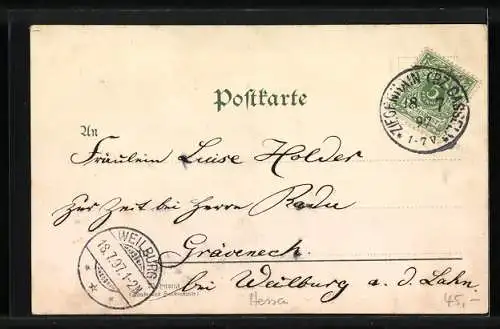 Postkarte
ZIEGENHAIN (BZ. CASSEL)
18 7
97
1-7 V.
An
Fräulein Luise Holder
zur Zeit bei Herrn
Gräveneck
bei Weilburg a. d. Lahn
WEILBURG
18.7.97.1-2N.
Hessen
45,-